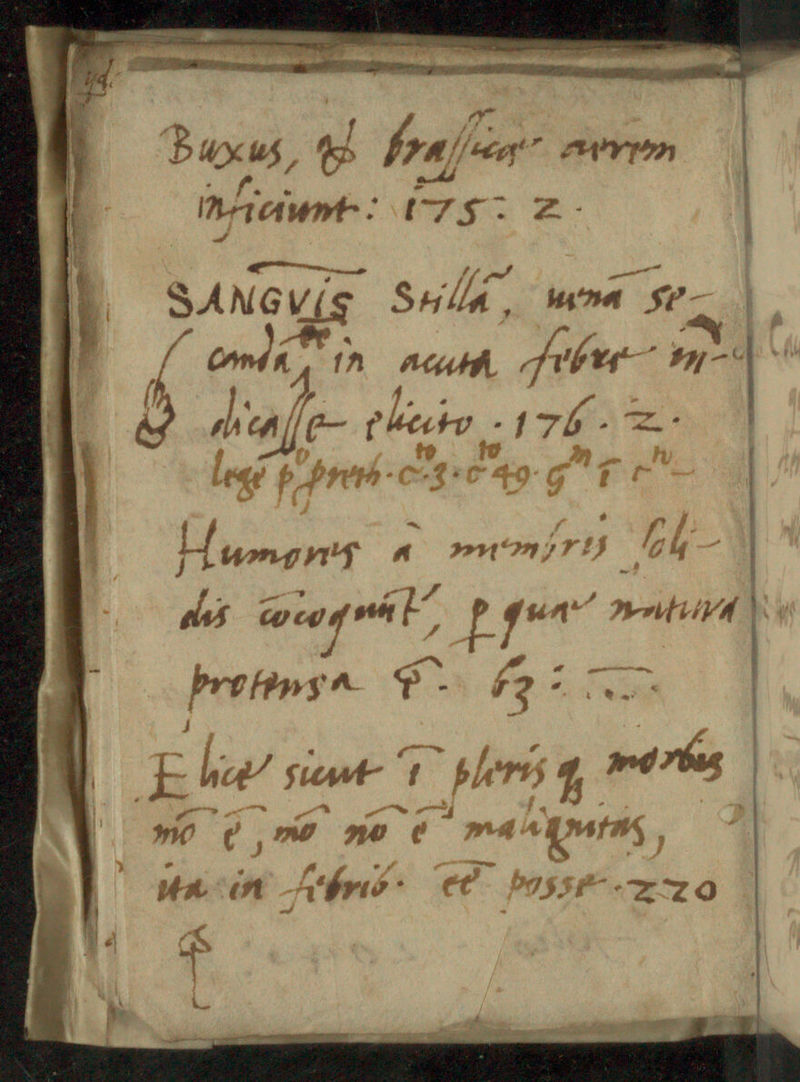 Buxus, & brassicae aerem
inficiunt: 175. 2.
SANGVIS Stillā, uenā se-
candā ēē in acuta febre in-
dicasse elicito. 176. 2.
lege p° preth. c.to 3. c.to 49. ī
Humores à membris soli-
dis cōcoquūt', p quae natura
protensa ē. 63: ....
Elice sicut ī plerisq; morbis
mō ē, mō nō ē malignitas,
ita in febrib. ēē posse. 220